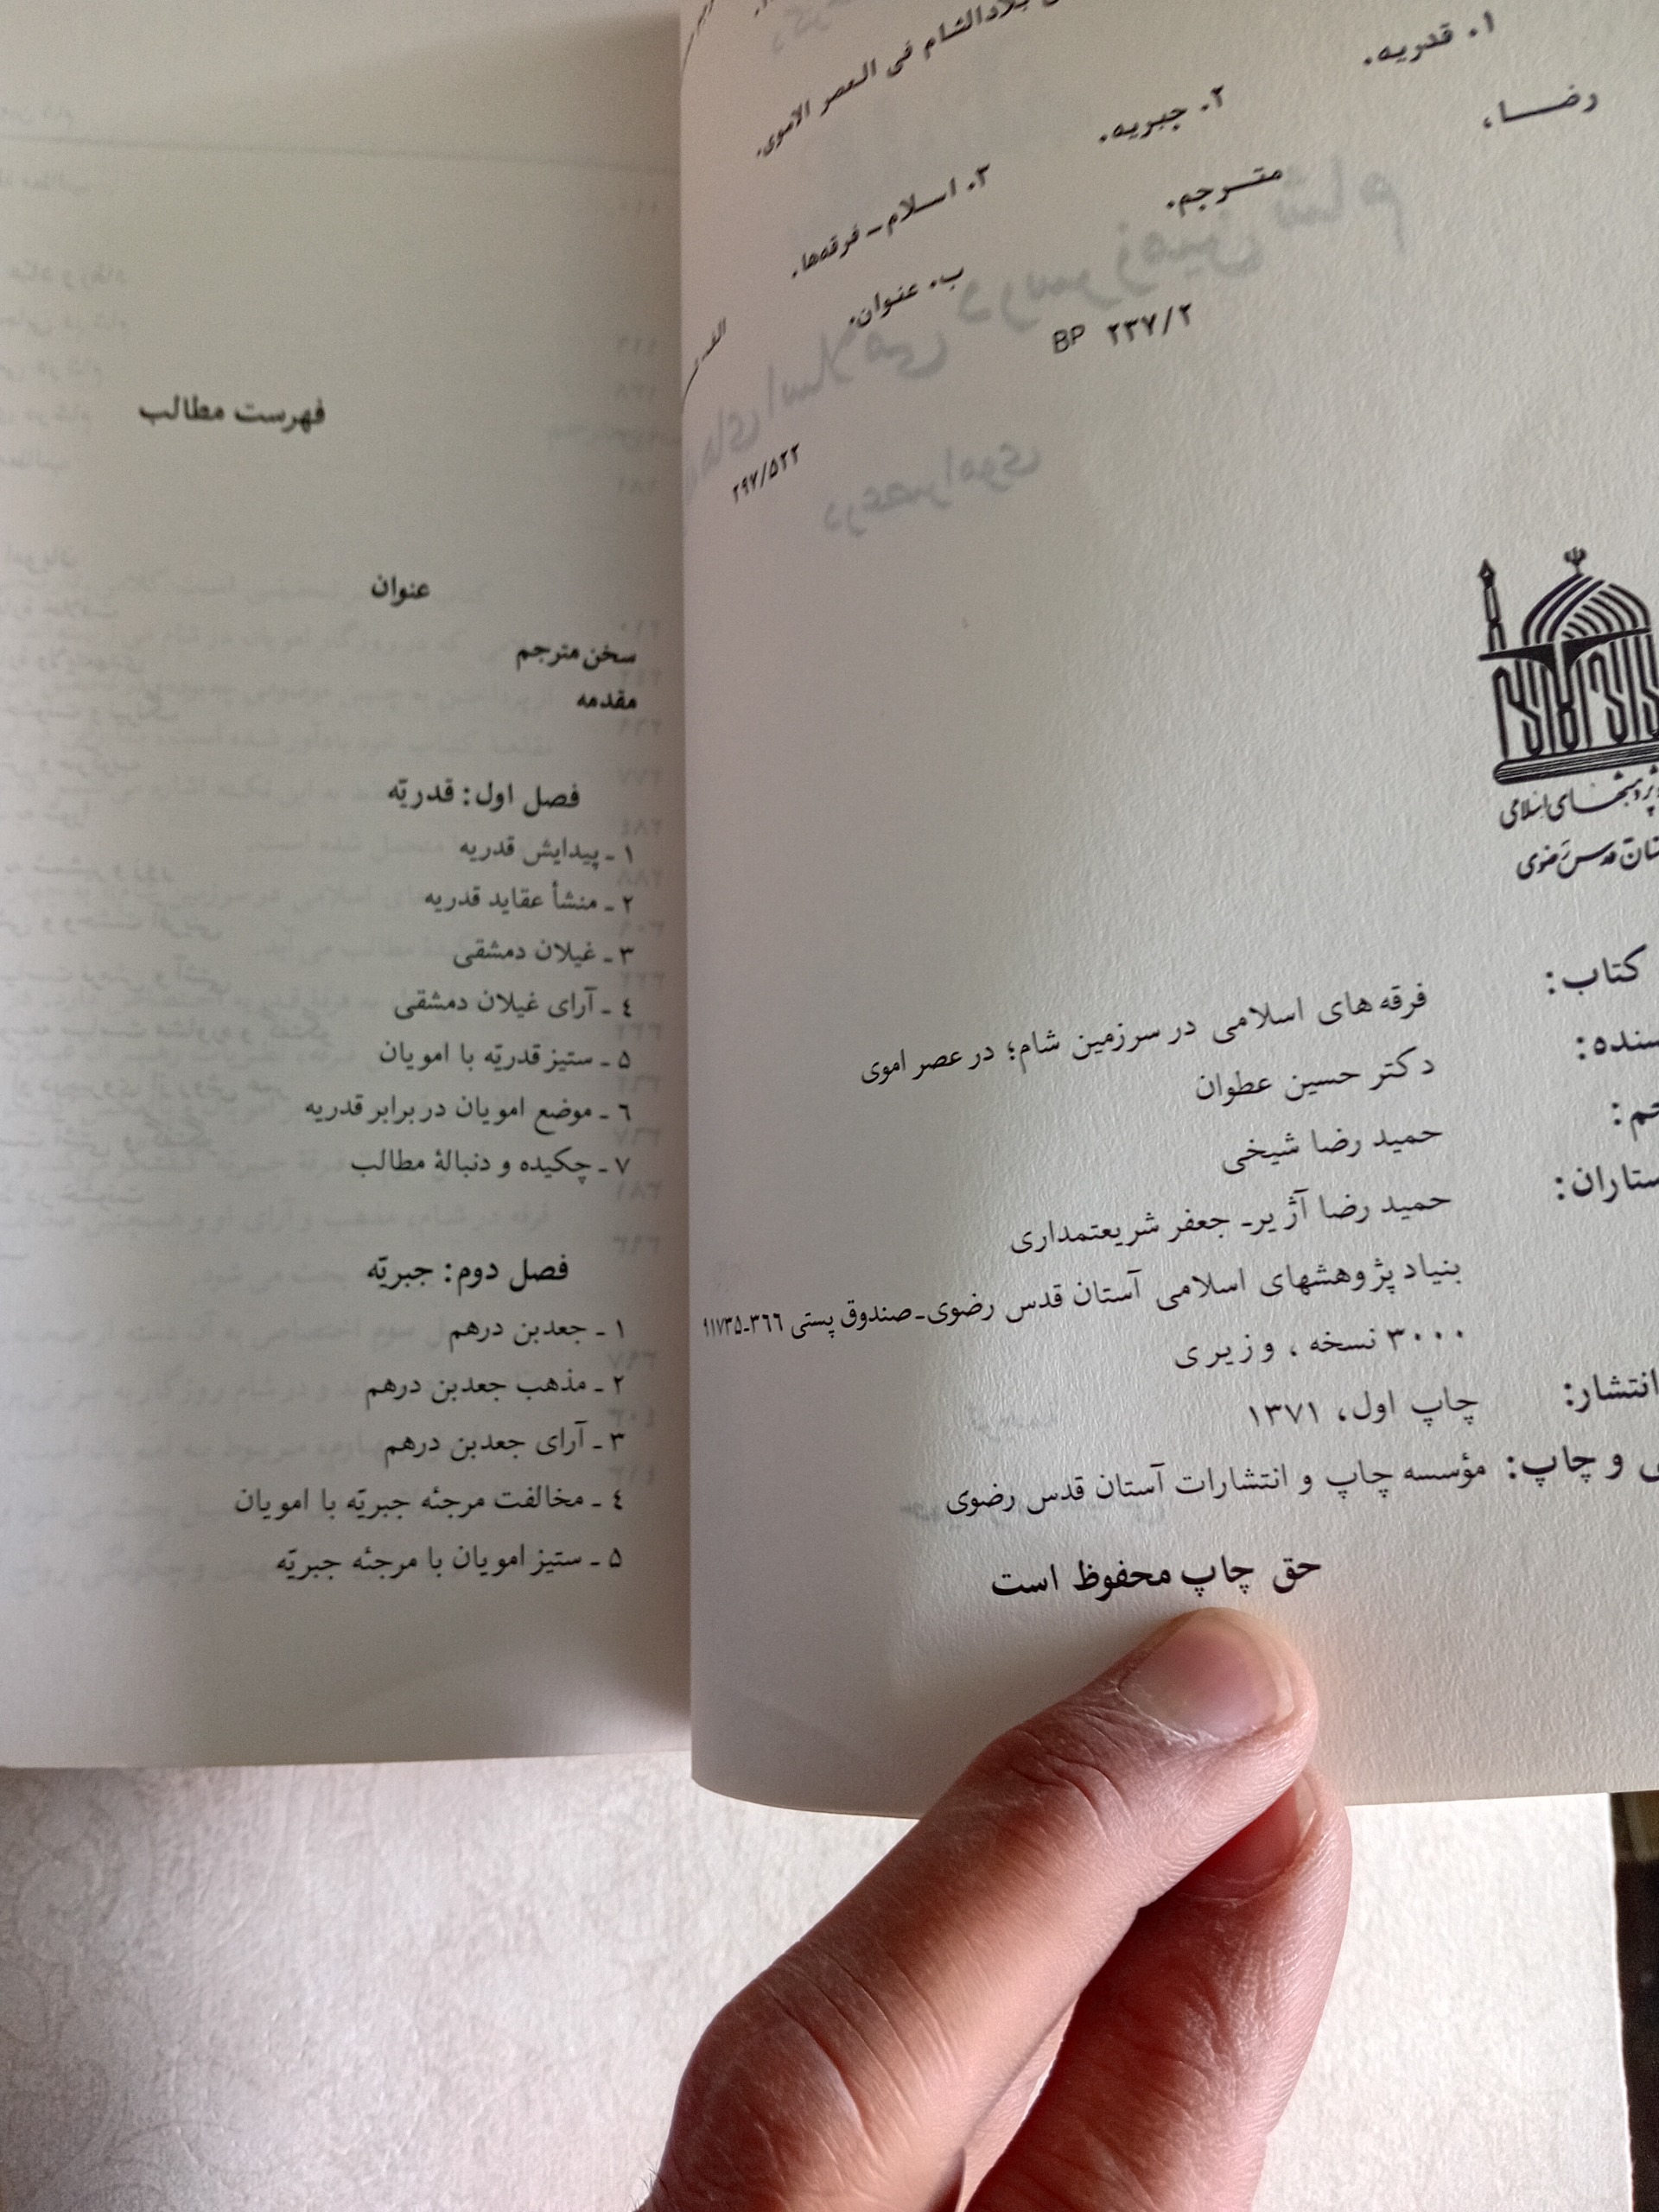 بلادالشام فی العصر الاموی.
۱. قدریه.
۲. جبریه.
۳. اسلام ـ فرقه‌ها.
رضا،
مترجم.
ب. عنوان.
BP ۲۳۷/۲
۲۹۷/۵۲۲
کتاب:
فرقه های اسلامی در سرزمین شام؛ در عصر اموی
دکتر حسین عطوان
حمید رضا شیخی
ستاران:
حمید رضا آژیر ـ جعفر شریعتمداری
بنیاد پژوهشهای اسلامی آستان قدس رضوی ـ صندوق پستی ۳۶۶-۹۱۷۳۵
۳۰۰۰ نسخه ، وزیری
انتشار:
چاپ اول، ۱۳۷۱
و چاپ: مؤسسه چاپ و انتشارات آستان قدس رضوی
حق چاپ محفوظ است
فهرست مطالب
عنوان
سخن مترجم
مقدمه
فصل اول: قدریّه
۱ ـ پیدایش قدریه
۲ ـ منشأ عقاید قدریه
۳ ـ غیلان دمشقی
٤ ـ آرای غیلان دمشقی
۵ ـ ستیز قدریّه با امویان
٦ ـ موضع امویان در برابر قدریه
۷ ـ چکیده و دنبالهٔ مطالب
فصل دوم: جبریّه
۱ ـ جعدبن درهم
۲ ـ مذهب جعدبن درهم
۳ ـ آرای جعدبن درهم
٤ ـ مخالفت مرجئه جبریّه با امویان
۵ ـ ستیز امویان با مرجئه جبریّه